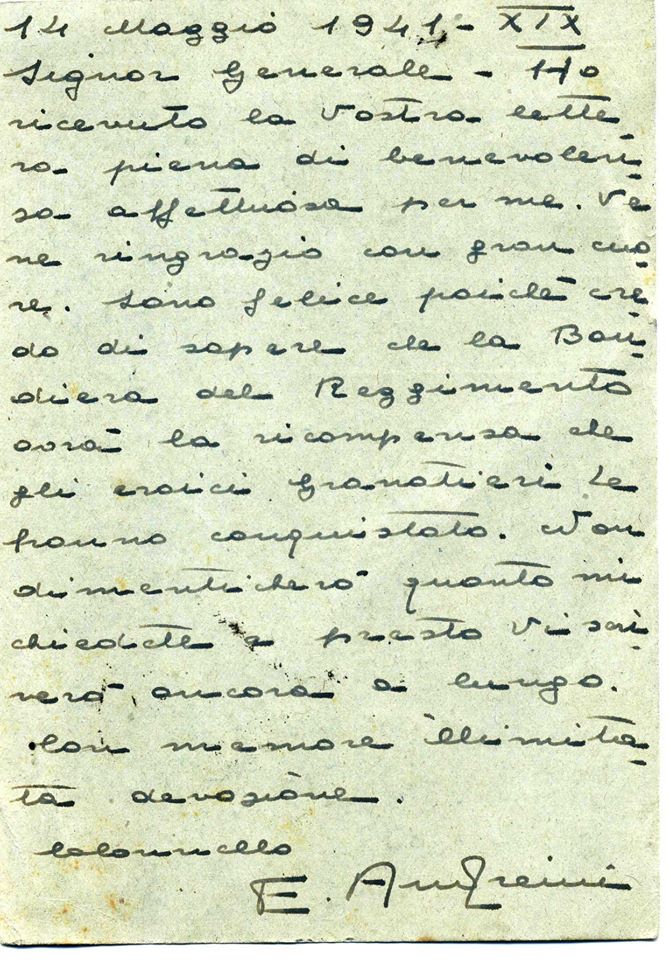 14 Maggio 1941 - XIX
Signor Generale - Ho
ricevuto la Vostra lette-
ra piena di benevolen-
sa affettuosa per me. Ve
ne ringrazio con gran cuo-
re. Sono felice poichè cre
do di sapere che la Ban-
diera del Reggimento
avrà la ricompensa che
gli eroici Granatieri Le
hanno conquistato. Non
dimenticherò quanto mi
chiedete e presto Vi scri-
verò ancora a lungo.
Con memore illimita-
ta devozione.
Colonnello
E. Andreini